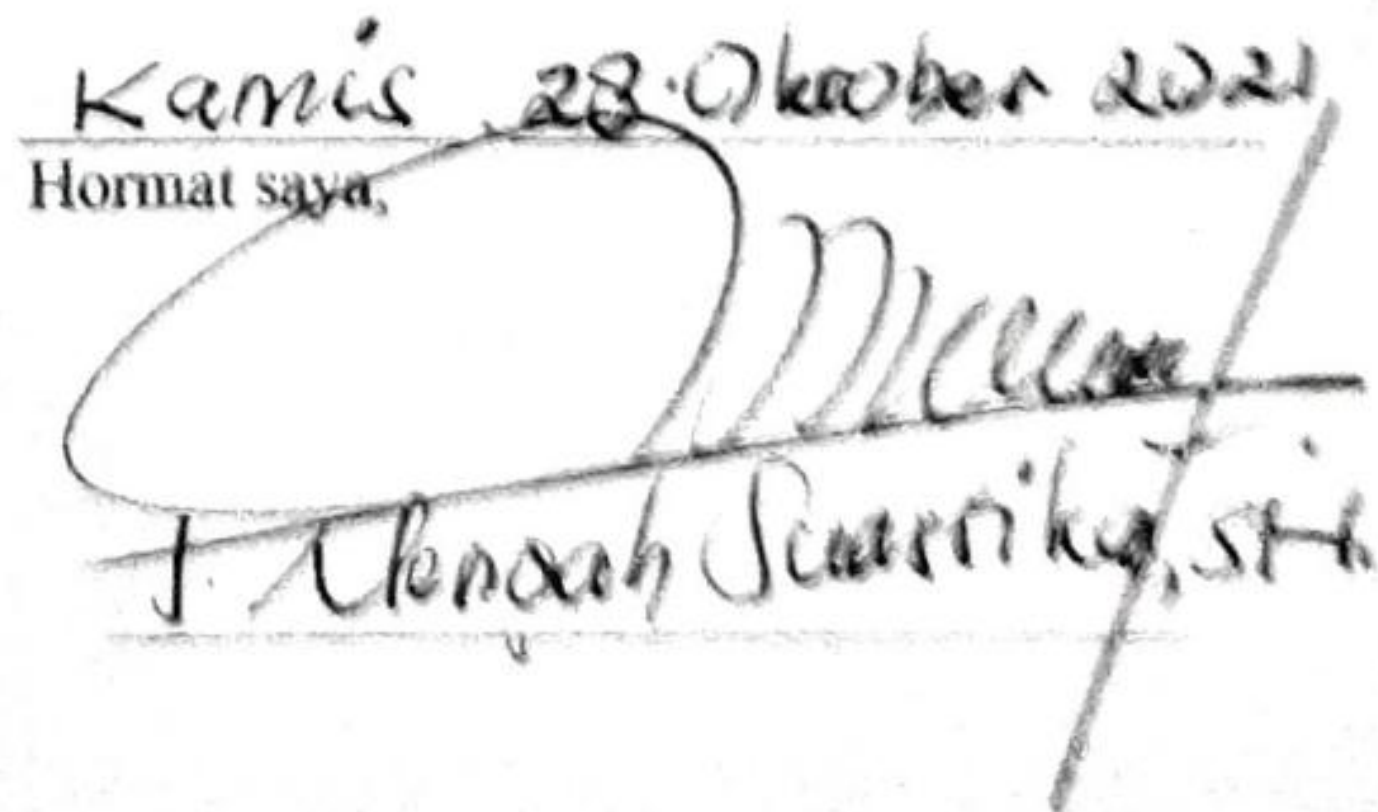 Kamis, 28 Oktober 2021
Hormat saya,
I. Nengah Suastika, SH.